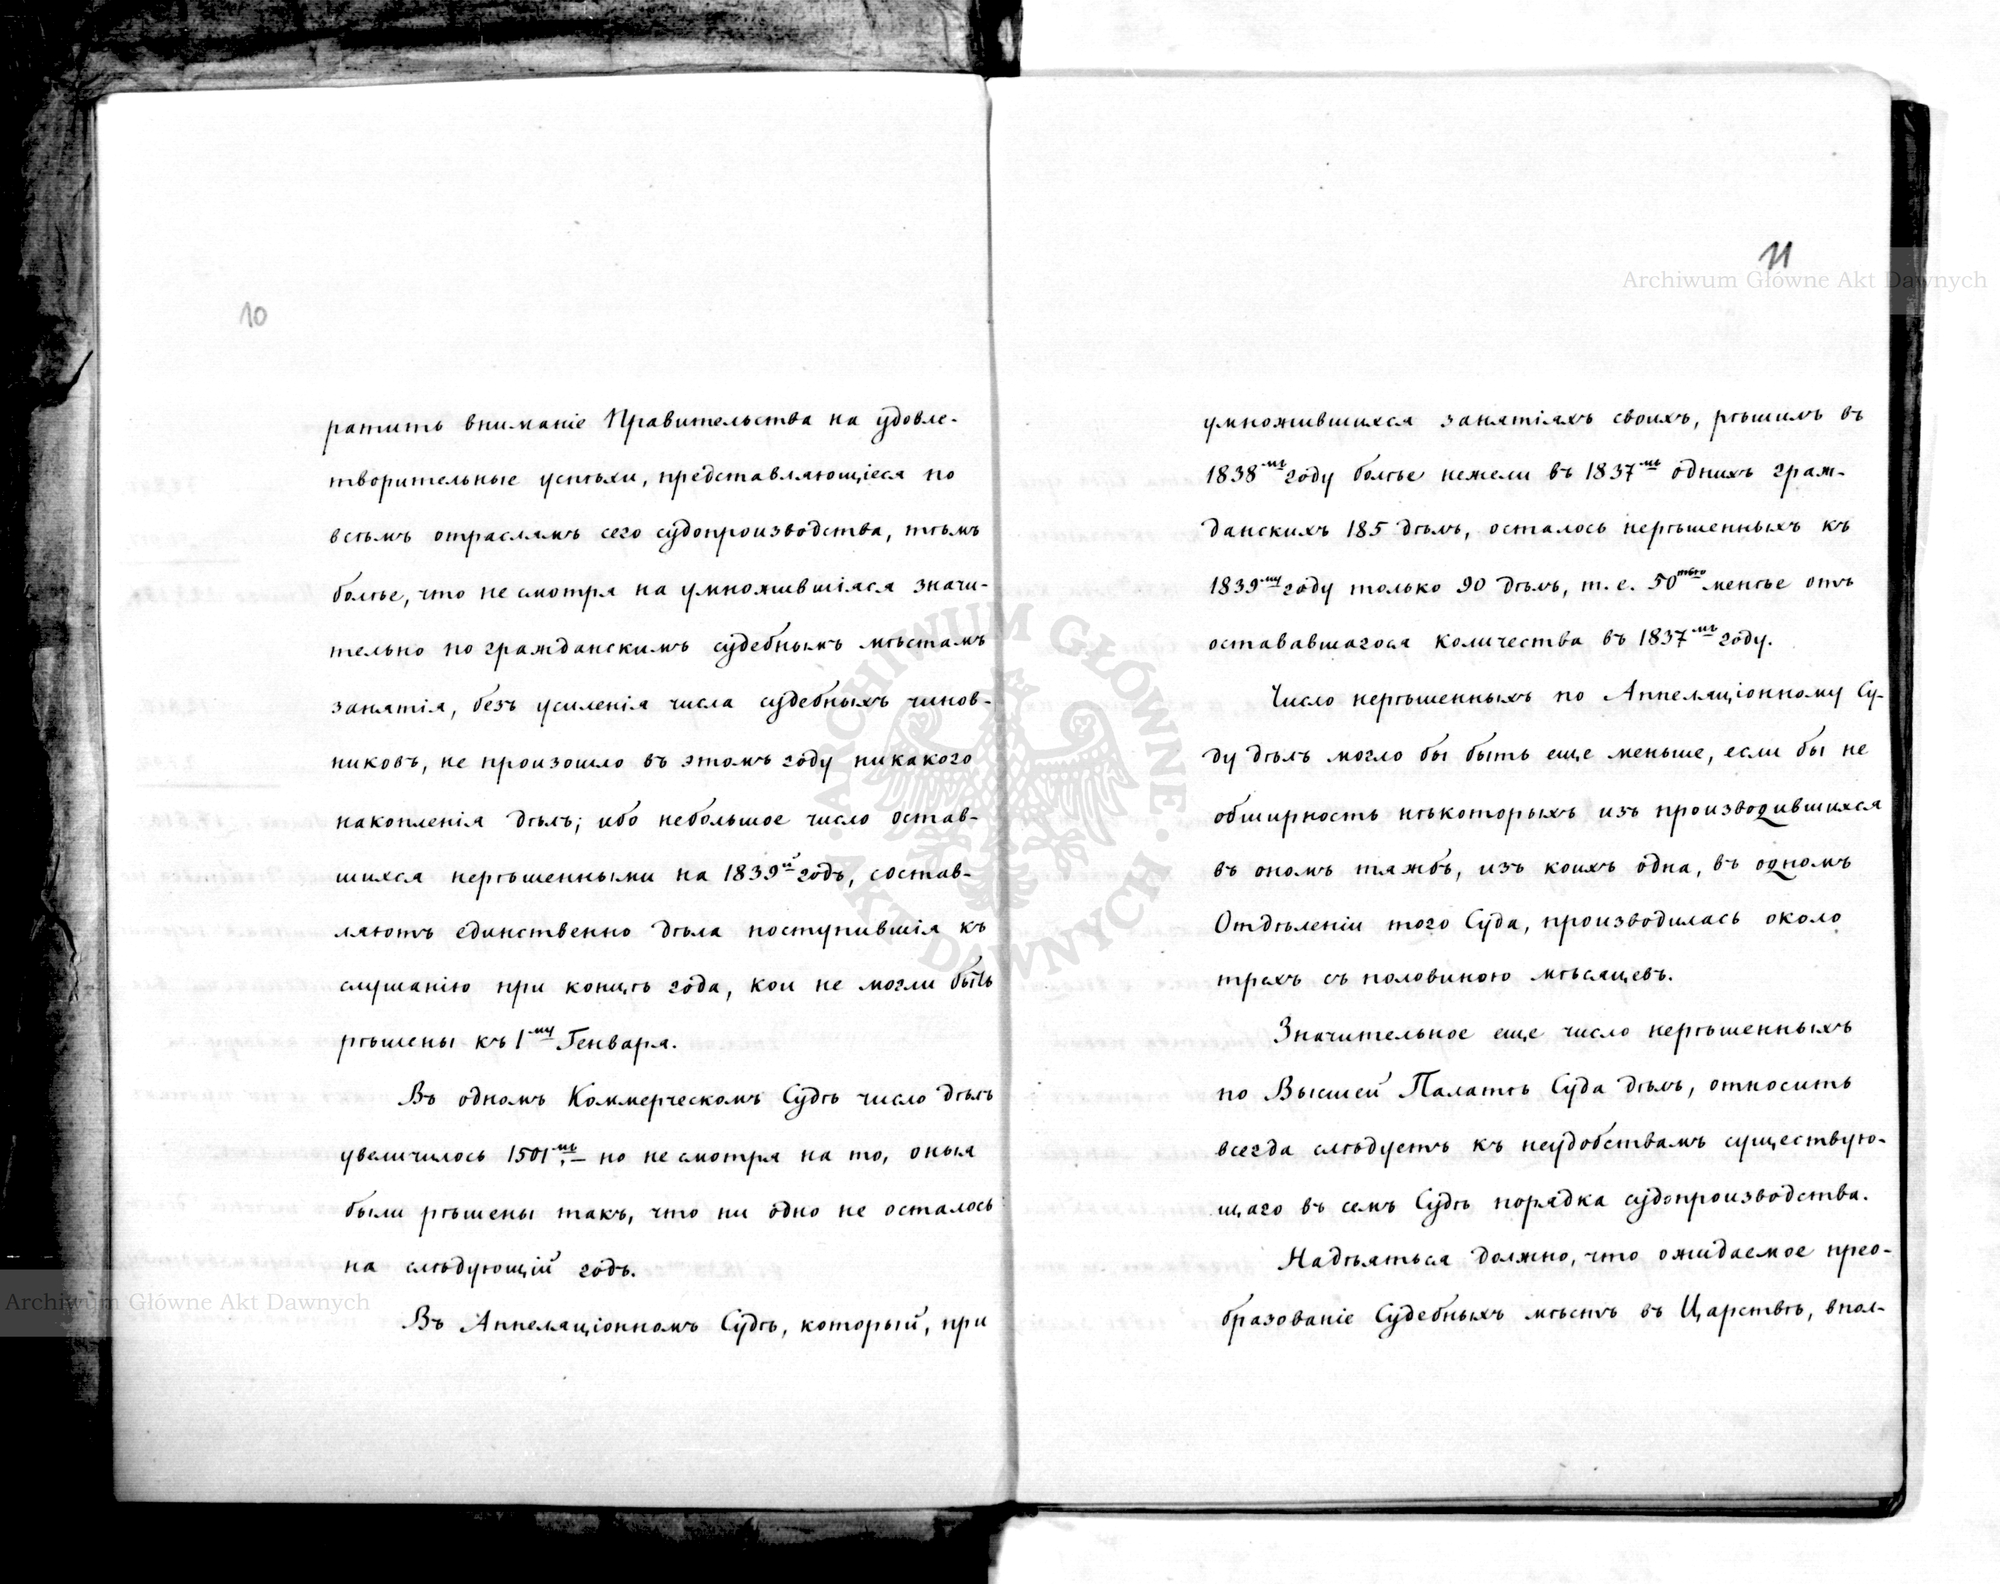 10
ратить вниманіе Правительства на удовле-
творительные успѣхи, представляющіеся по
всѣмъ отраслямъ сего судопроизводства, тѣмъ
болѣе, что не смотря на умножившіяся значи-
тельно по гражданскимъ судебнымъ мѣстамъ
занятія, безъ усиленія числа судебныхъ чинов-
никовъ, не произошло въ этомъ году никакого
накопленія дѣлъ; ибо небольшое число остав-
шихся нерѣшенными на 1839й годъ, состав-
ляютъ единственно дѣла поступившія къ
слушанію при концѣ года, кои не могли быть
рѣшены къ 1му Генваря.
Въ одномъ Коммерческомъ Судѣ число дѣлъ
увеличилось 1501мъ, но не смотря на то, оныя
были рѣшены такъ, что ни одно не осталось
на слѣдующій годъ.
Въ Аппеляціонномъ Судѣ, который, при
11
умножившихся занятіяхъ своихъ, рѣшилъ въ
1838мъ году болѣе нежели въ 1837мъ однихъ граж-
данскихъ 185 дѣлъ, осталось нерѣшенныхъ къ
1839му году только 90 дѣлъ, т. е. 50тью менѣе отъ
остававшагося количества въ 1837мъ году.
Число нерѣшенныхъ по Аппеляціонному Су-
ду дѣлъ могло бы быть еще меньше, если бы не
обширность нѣкоторыхъ изъ производившихся
въ ономъ тяжбъ, изъ коихъ одна, въ одномъ
Отдѣленіи того Суда, производилась около
трехъ съ половиною мѣсяцевъ.
Значительное еще число нерѣшенныхъ
по Высшей Палатѣ Суда дѣлъ, относить
всегда слѣдуетъ къ неудобствамъ существую-
щаго въ семъ Судѣ порядка судопроизводства.
Надѣяться должно, что ожидаемое прео-
бразованіе Судебныхъ мѣстъ въ Царствѣ, впол-
Archiwum Główne Akt Dawnych
Archiwum Główne Akt Dawnych
ARCHIWUM GŁÓWNE AKT DAWNYCH